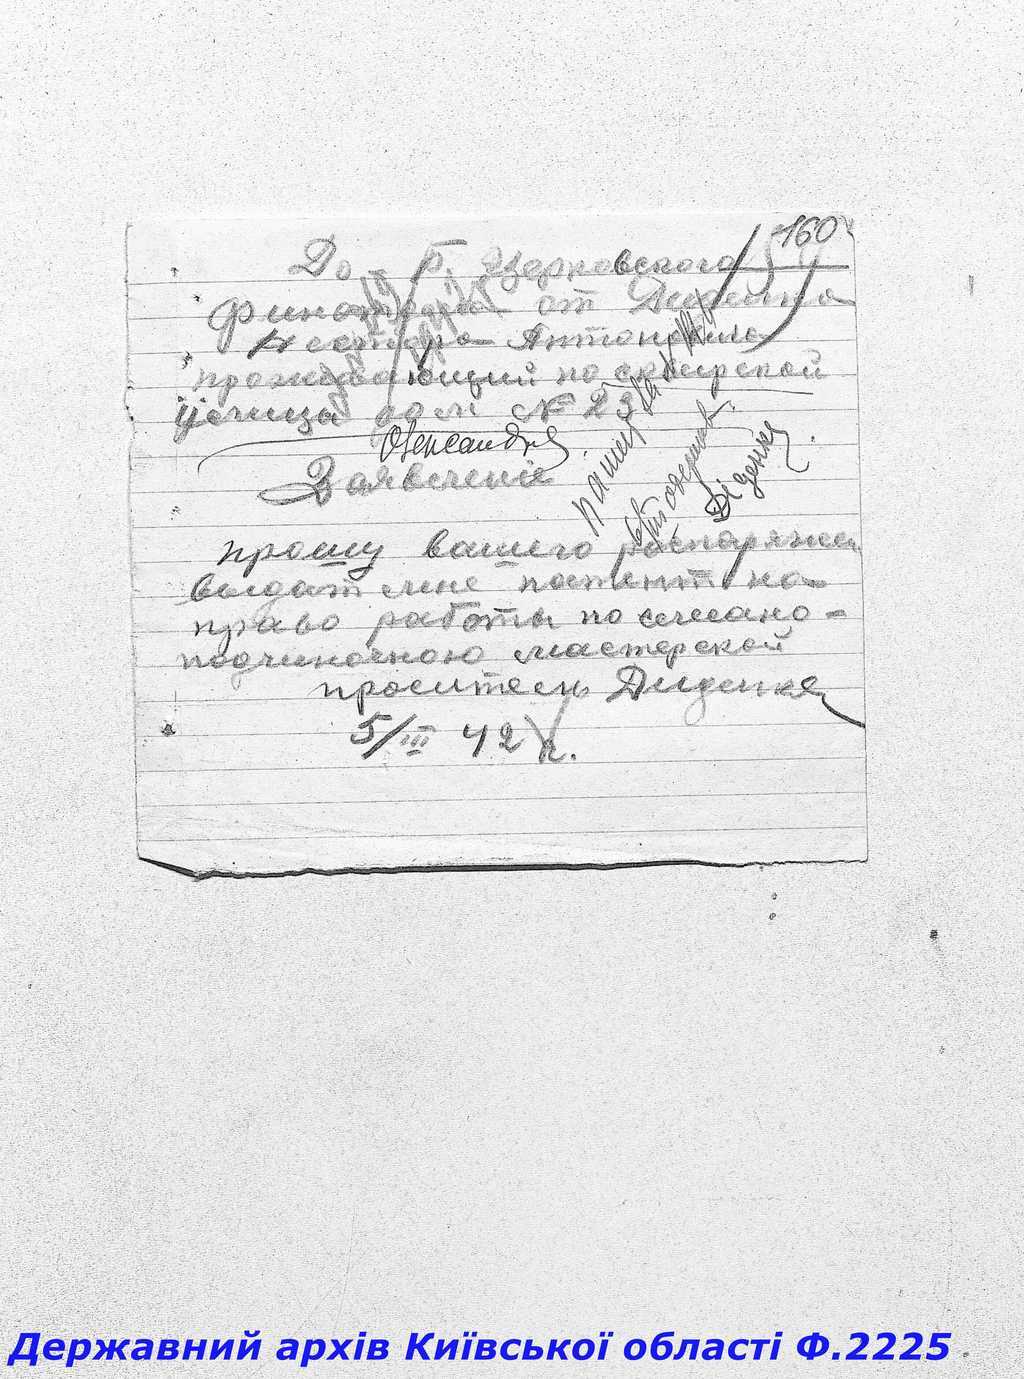 160
До Б. Церковского
Финотдела от Диденко
Нестора Антоновича
проживающий по сквирской
улицы дом № 29
Олександрія
Заявление
прошу вашего распоряжен.
выдат мне патент на
право работы по слесарно-
подчиночною мастерской
проситель Диденко
5/III 42 г.
патент
отримав
Діденко
Державний архів Київської області Ф.2225